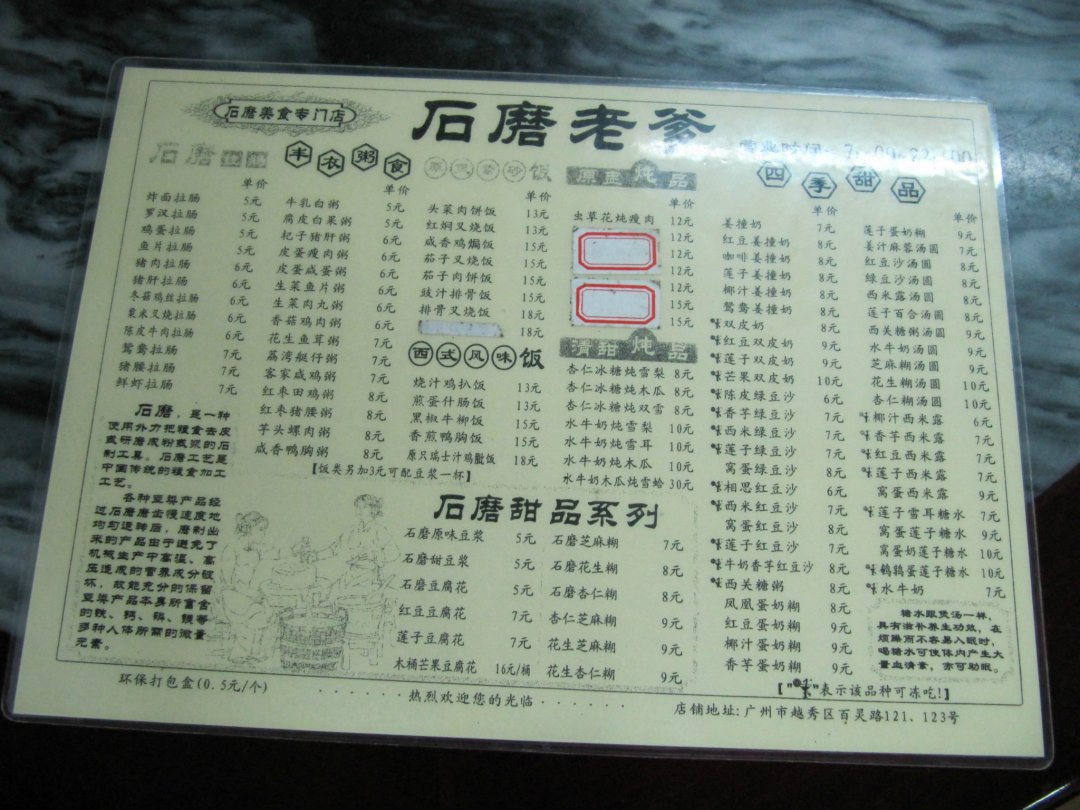 石磨美食专门店
石磨老爹
石磨拉肠
单价
炸面拉肠 5元
罗汉拉肠 5元
鸡蛋拉肠 5元
鱼片拉肠 5元
猪肉拉肠 6元
猪肝拉肠 6元
冬菇鸡丝拉肠 6元
粟米叉烧拉肠 6元
陈皮牛肉拉肠 6元
鸳鸯拉肠 7元
猪腰拉肠 7元
鲜虾拉肠 7元
石磨，是一种
使用外力把粮食去皮
或研磨成粉或浆的石
制工具。石磨工艺是
中国传统的粮食加工
工艺。
各种豆类产品经
过石磨磨齿慢速度地
均匀运转后，磨制出
来的产品由于避免了
机械生产中高温、高
压造成的营养成分破
坏，故能充分的保留
豆类产品本身所富含
的铁、钙、磷、镁等
多种人体所需的微量
元素。
羊衣粥食
单价
牛乳白粥 5元
腐皮白果粥 5元
杞子猪肝粥 6元
皮蛋瘦肉粥 6元
皮蛋咸蛋粥 6元
生菜鱼片粥 6元
生菜肉丸粥 6元
香菇鸡肉粥 6元
花生鱼茸粥 7元
荔湾艇仔粥 7元
客家咸鸡粥 7元
红枣田鸡粥 8元
红枣猪腰粥 8元
芋头螺肉粥 8元
咸香鸭胸粥 8元
饭
单价
头菜肉饼饭 13元
红焖叉烧饭 13元
咸香鸡焗饭 15元
茄子叉烧饭 15元
茄子肉饼饭 15元
豉汁排骨饭 15元
排骨叉烧饭 18元
18元
西式风味饭
烧汁鸡扒饭 13元
煎蛋什肠饭 13元
黑椒牛柳饭 15元
香煎鸭胸饭 15元
原只瑞士汁鸡髀饭 18元
【饭类另加3元可配豆浆一杯】
原盅炖品
单价
虫草花炖瘦肉 12元
12元
12元
12元
12元
15元
15元
清甜炖品
杏仁冰糖炖雪梨 8元
杏仁冰糖炖木瓜 8元
杏仁冰糖炖双雪 8元
水牛奶炖雪梨 10元
水牛奶炖雪耳 10元
水牛奶炖木瓜 10元
水牛奶木瓜炖雪蛤 30元
石磨甜品系列
石磨原味豆浆 5元
石磨甜豆浆 5元
石磨豆腐花 5元
红豆豆腐花 7元
莲子豆腐花 7元
木桶芒果豆腐花 16元/桶
石磨芝麻糊 7元
石磨花生糊 8元
石磨杏仁糊 8元
杏仁芝麻糊 9元
花生芝麻糊 9元
花生杏仁糊 9元
四季甜品
单价
姜撞奶 7元
红豆姜撞奶 8元
咖啡姜撞奶 8元
莲子姜撞奶 8元
椰汁姜撞奶 8元
鸳鸯姜撞奶 8元
双皮奶 8元
红豆双皮奶 9元
莲子双皮奶 9元
芒果双皮奶 10元
陈皮绿豆沙 6元
香芋绿豆沙 7元
西米绿豆沙 7元
莲子绿豆沙 7元
窝蛋绿豆沙 8元
相思红豆沙 6元
西米红豆沙 7元
窝蛋红豆沙 8元
莲子红豆沙 7元
牛奶香芋红豆沙 8元
西关糖粥 8元
凤凰蛋奶糊 8元
红豆蛋奶糊 9元
椰汁蛋奶糊 9元
香芋蛋奶糊 9元
单价
莲子蛋奶糊 9元
姜汁麻蓉汤圆 8元
红豆沙汤圆 8元
绿豆沙汤圆 8元
西米露汤圆 8元
莲子百合汤圆 8元
西关糖粥汤圆 9元
水牛奶汤圆 9元
芝麻糊汤圆 10元
花生糊汤圆 10元
杏仁糊汤圆 10元
椰汁西米露 6元
香芋西米露 7元
红豆西米露 7元
莲子西米露 7元
窝蛋西米露 9元
莲子雪耳糖水 7元
窝蛋莲子糖水 9元
窝蛋奶莲子糖水 10元
鹌鹑蛋莲子糖水 10元
水牛奶 7元
糖水跟煲汤一样，
具有滋补养生功效，在
烦躁而不容易入眠时，
喝糖水可使体内产生大
量血清素，亦可助眠。
【" "表示该品种可冻吃!】
环保打包盒(0.5元/个)
······热烈欢迎您的光临······
店铺地址:广州市越秀区百灵路121、123号